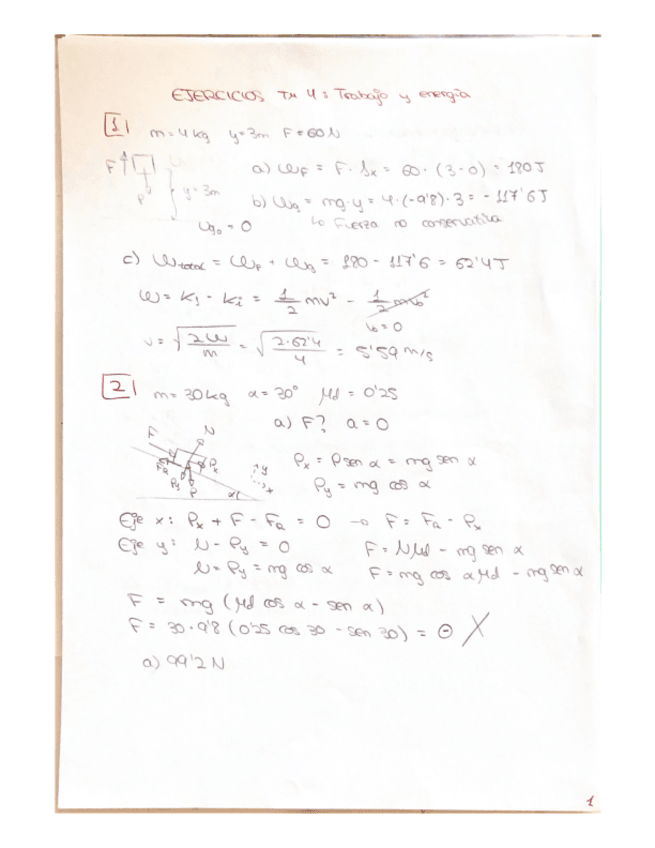 EJERCICIOS TM 4: Trabajo y energía
1
m = 4 kg y = 3m F = 60 N
F
P
y = 3m
Ug₀ = 0
a) WF = F · Δx = 60 · (3-0) = 180 J
b) Wg = mg·y = 4·(-9'8)·3 = -117'6 J
↳ Fuerza no conservativa
c) Wtotal = WF + Wg = 180 - 117'6 = 62'4 J
W = Kf - Ki = 1/2 mv² - 1/2 mv₀²
v₀ = 0
v = √(2W/m) = √(2·62'4/4) = 5'59 m/s
2
m = 30 kg α = 30° μd = 0'25
a) F? a = 0
F
N
Fa
Px
Py
P
α
y
x
Px = P sen α = mg sen α
Py = mg cos α
Eje x: Px + F - Fa = 0 → F = Fa - Px
Eje y: N - Py = 0 F = Nμd - mg sen α
N = Py = mg cos α F = mg cos α μd - mg sen α
F = mg (μd cos α - sen α)
F = 30·9'8 (0'25 cos 30 - sen 30) = ⊖ X
a) 99'2 N
1